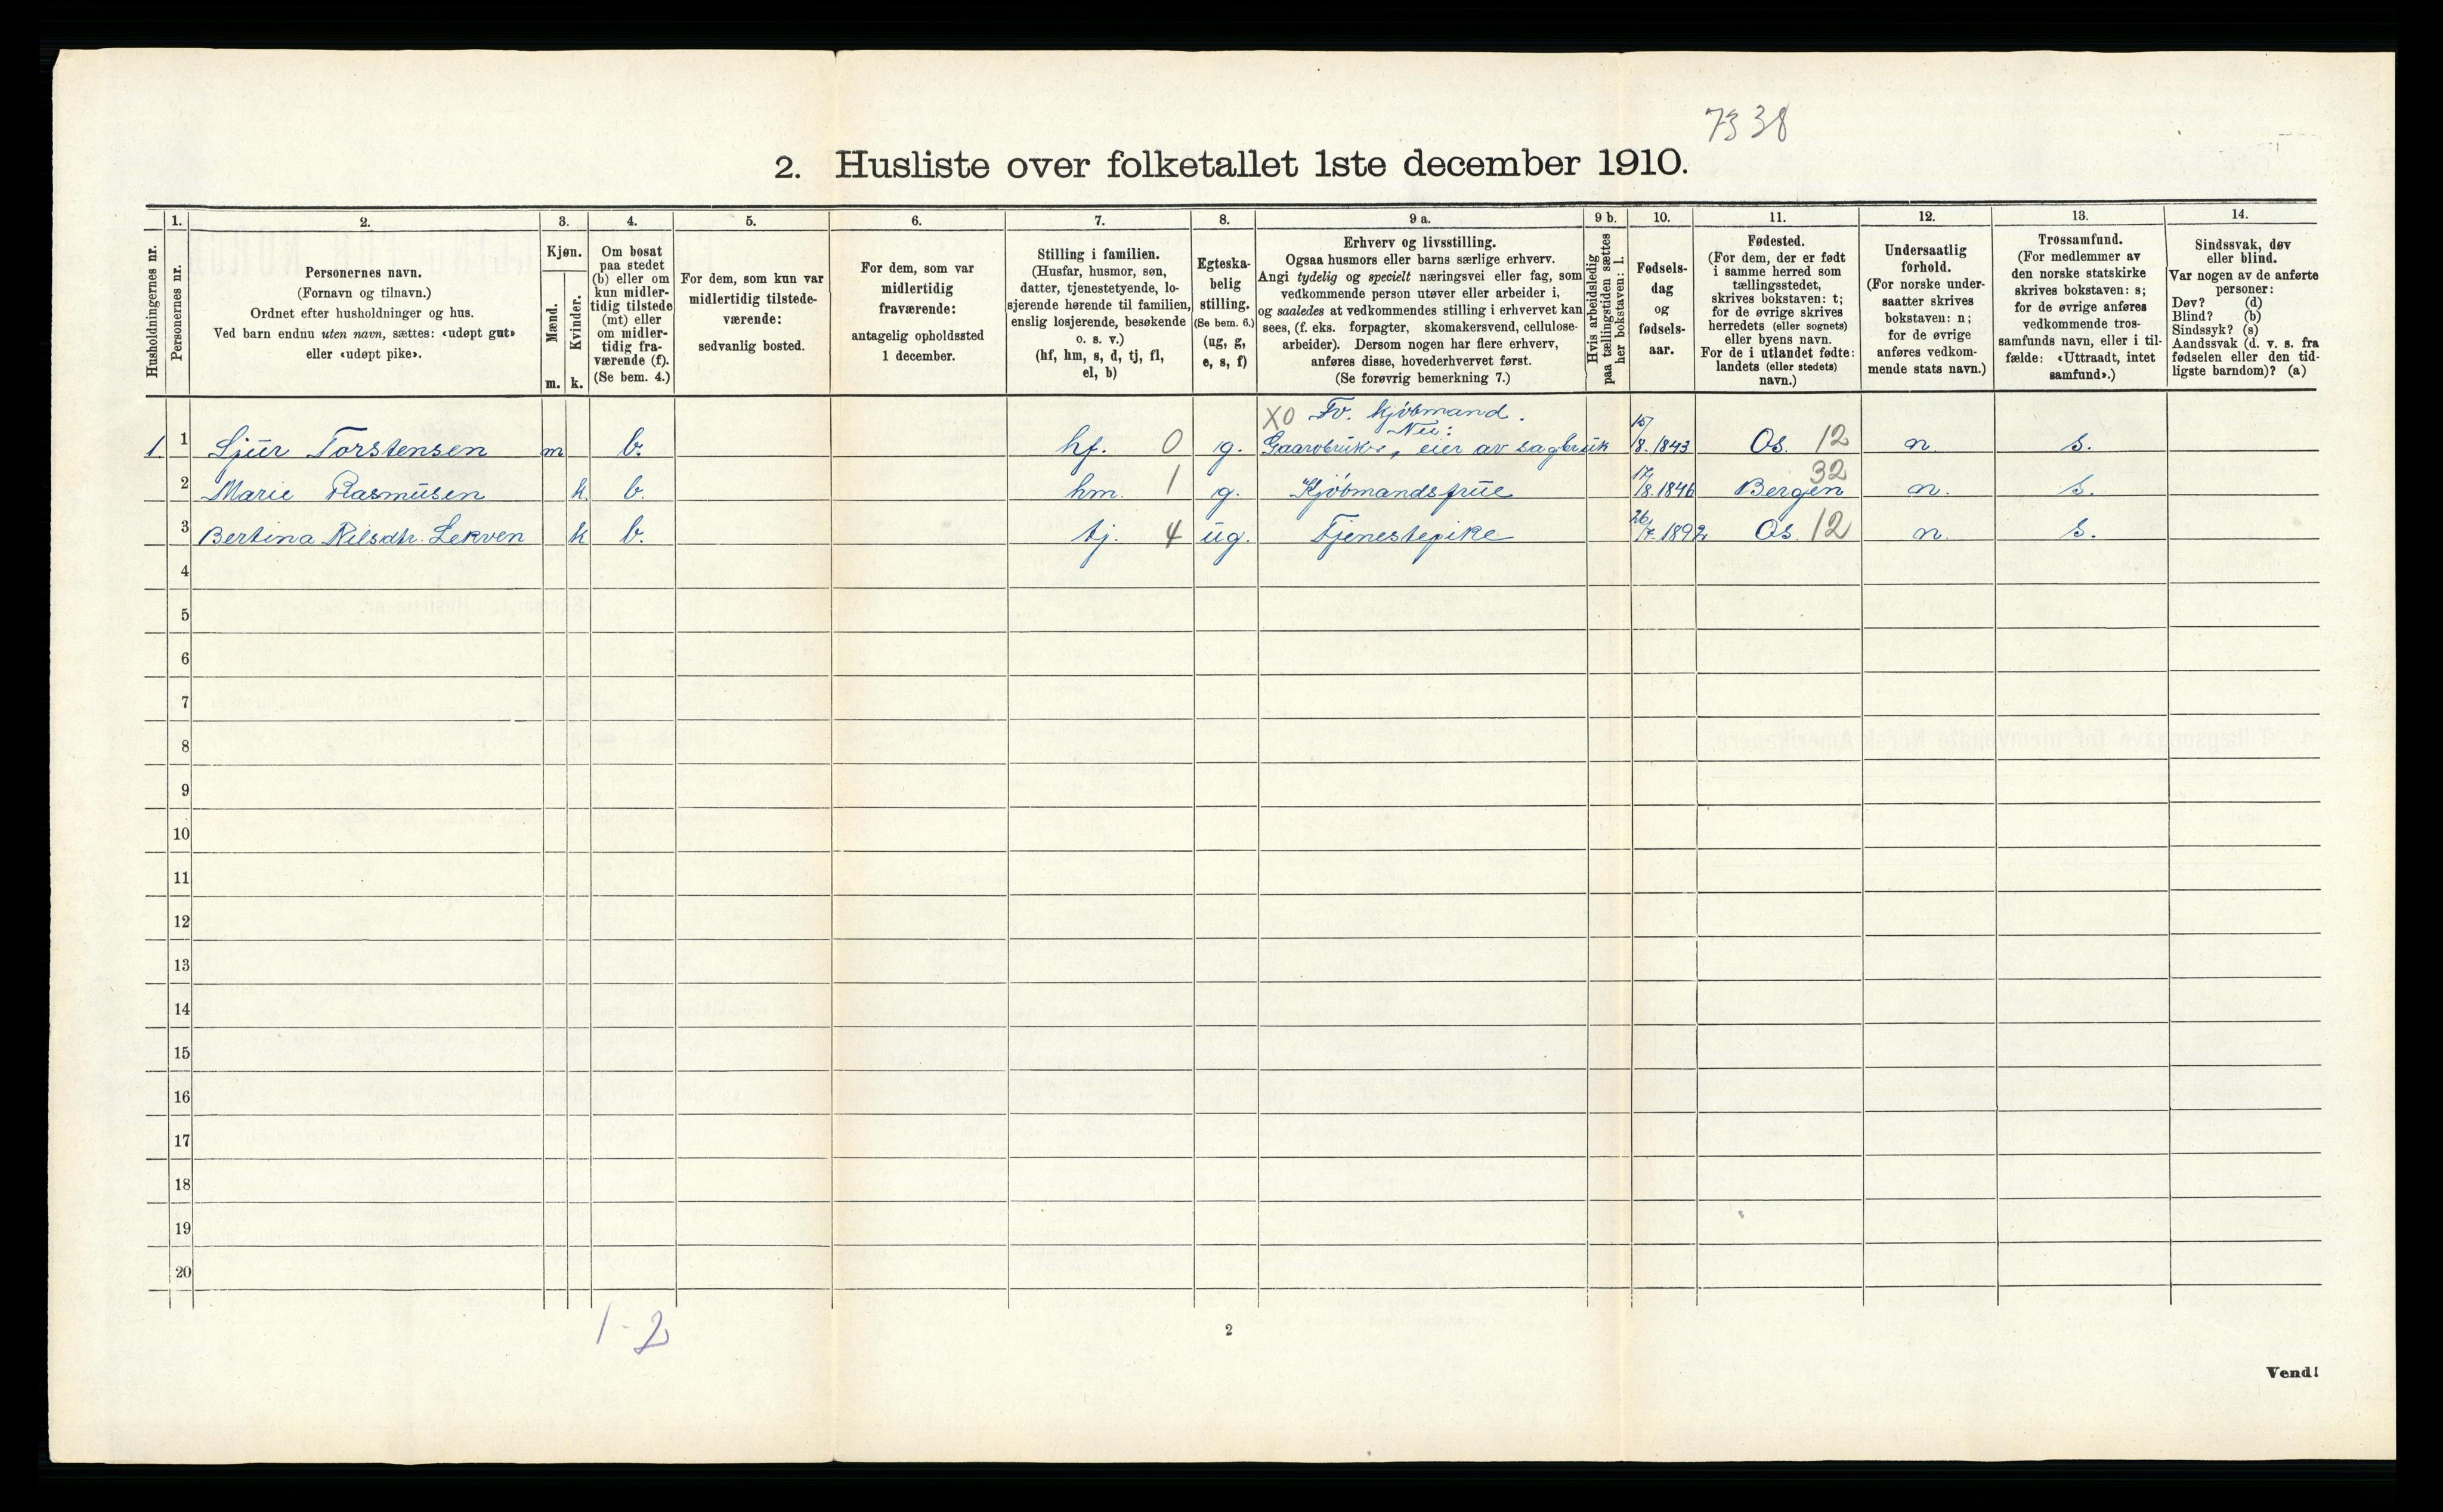 7338
2. Husliste over folketallet 1ste december 1910.
Husholdningernes nr.
1.
Personernes nr.
2.
Personernes navn.
(Fornavn og tilnavn.)
Ordnet efter husholdninger og hus.
Ved barn endnu uten navn, sættes: «udøpt gut»
eller «udøpt pike».
3.
Kjøn.
Mænd.
Kvinder.
m. k.
4.
Om bosat
paa stedet
(b) eller om
kun midler-
tidig tilstede
(mt) eller
om midler-
tidig fra-
værende (f).
(Se bem. 4.)
5.
For dem, som kun var
midlertidig tilstede-
værende:
sedvanlig bosted.
6.
For dem, som var
midlertidig
fraværende:
antagelig opholdssted
1 december.
7.
Stilling i familien.
(Husfar, husmor, søn,
datter, tjenestetyende, lo-
sjerende hørende til familien,
enslig losjerende, besøkende
o. s. v.)
(hf, hm, s, d, tj, fl,
el, b)
8.
Egteska-
belig
stilling.
(Se bem. 6.)
(ug, g,
e, s, f)
9 a.
Erhverv og livsstilling.
Ogsaa husmors eller barns særlige erhverv.
Angi tydelig og specielt næringsvei eller fag, som
vedkommende person utøver eller arbeider i,
og saaledes at vedkommendes stilling i erhvervet kan
sees, (f. eks. forpagter, skomakersvend, cellulose-
arbeider). Dersom nogen har flere erhverv,
anføres disse, hovederhvervet først.
(Se forøvrig bemerkning 7.)
9 b.
Hvis arbeidsledig
paa tællingstiden sættes
her bokstaven: l.
10.
Fødsels-
dag
og
fødsels-
aar.
11.
Fødested.
(For dem, der er født
i samme herred som
tællingsstedet,
skrives bokstaven: t;
for de øvrige skrives
herredets (eller sognets)
eller byens navn.
For de i utlandet fødte:
landets (eller stedets)
navn.)
12.
Undersaatlig
forhold.
(For norske under-
saatter skrives
bokstaven: n;
for de øvrige
anføres vedkom-
mende stats navn.)
13.
Trossamfund.
(For medlemmer av
den norske statskirke
skrives bokstaven: s;
for de øvrige anføres
vedkommende tros-
samfunds navn, eller i til-
fælde: «Uttraadt, intet
samfund».)
14.
Sindssvak, døv
eller blind.
Var nogen av de anførte
personer:
Døv? (d)
Blind? (b)
Sindssyk? (s)
Aandssvak (d. v. s. fra
fødselen eller den tid-
ligste barndom)? (a)
XO Fv. Kjöbmand.
Nu:
1 1 Sjur Torstensen m b. hf. 0 g. Gaardbruker, eier av sagbruk 15/8.1843 Os. 12 n. s.
2 Marie Rasmusen k. b. hm. 1 g. Kjöbmandsfrue 17/8.1846 Bergen 32 n. s.
3 Bertina Nilsdtr. Lekven k b. tj. 4 ug. Tjenestepike 26/7.1892 Os. 12 n. s.
4
5
6
7
8
9
10
11
12
13
14
15
16
17
18
19
20
1-2
2
Vend!